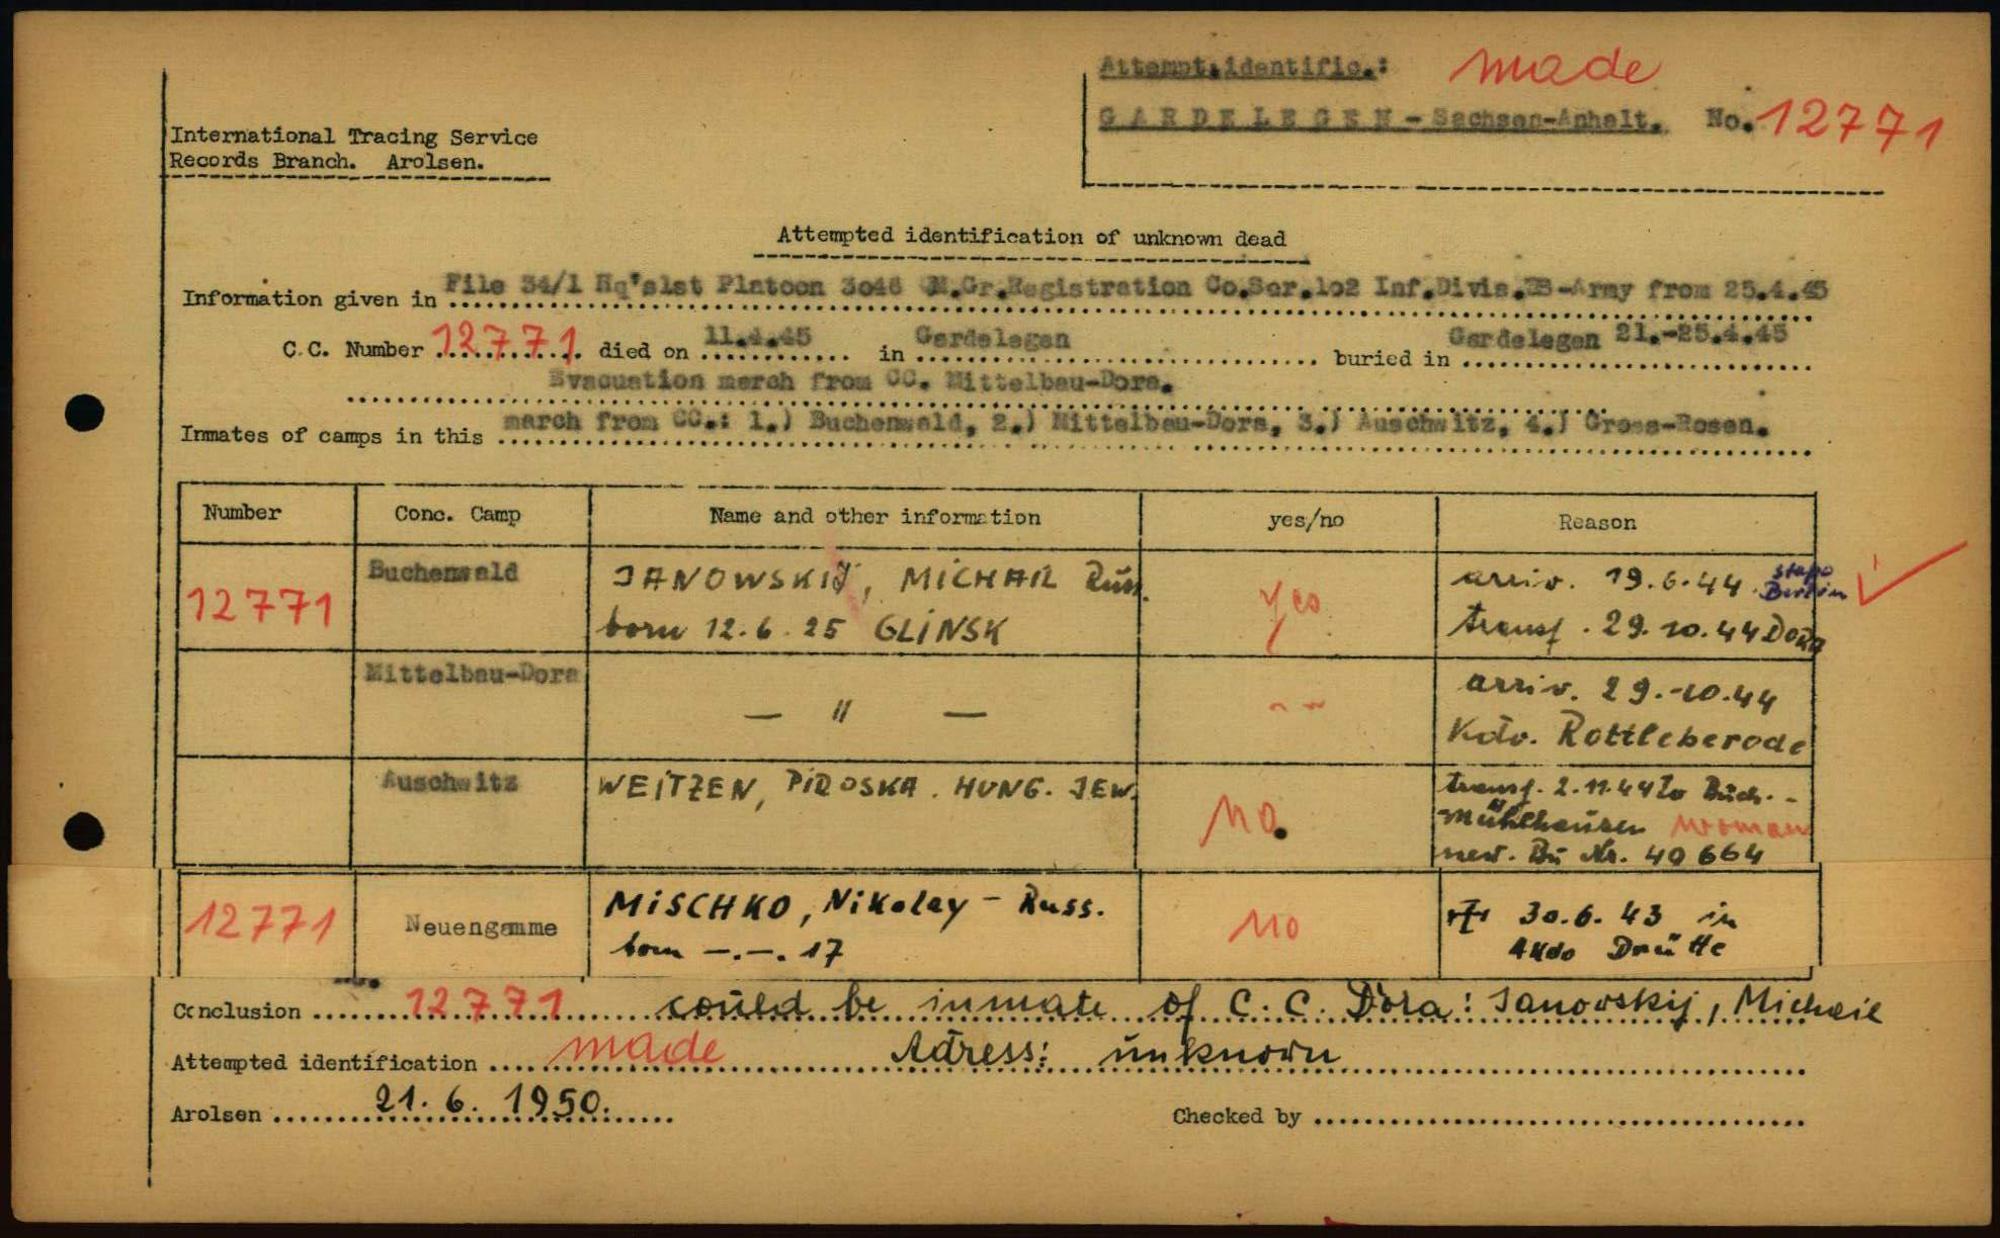 Attempt.identific.: made
GARDELEGEN - Sachsen-Anhalt. No. 12771
International Tracing Service
Records Branch. Arolsen.
Attempted identification of unknown dead
Information given in File 34/1 Hq's1st Platoon 3046 M.Gr.Registration Co.Ser.102 Inf.Divis.US-Army from 25.4.45
C.C. Number 12771 died on 11.4.45 in Gardelegen buried in Gardelegen 21.-25.4.45
Evacuation march from CC. Mittelbau-Dora.
Inmates of camps in this march from CC.: 1.) Buchenwald, 2.) Mittelbau-Dora, 3.) Auschwitz, 4.) Gross-Rosen.
Number Conc. Camp Name and other information yes/no Reason
12771 Buchenwald JANOWSKIJ, MICHAIL Russ. yes arriv. 19.6.44 stapo Berlin
born 12.6.25 GLINSK transf. 29.10.44 DORA
Mittelbau-Dora — " — arriv. 29.-10.44
Kdo. Rottleberode
Auschwitz WEITZEN, PIROSKA. HUNG. JEW. no. transf. 2.11.44 to Buch.-
Mühlhausen woman
new. Bu Nr. 40664
12771 Neuengamme MISCHKO, Nikolay - Russ. no 30.6.43 in
born -.-. 17 AKdo Drütte
Conclusion 12771 could be inmate of C.C. Dora: Janovskij, Michail
Attempted identification made Adress: unknown
Arolsen 21.6.1950. Checked by